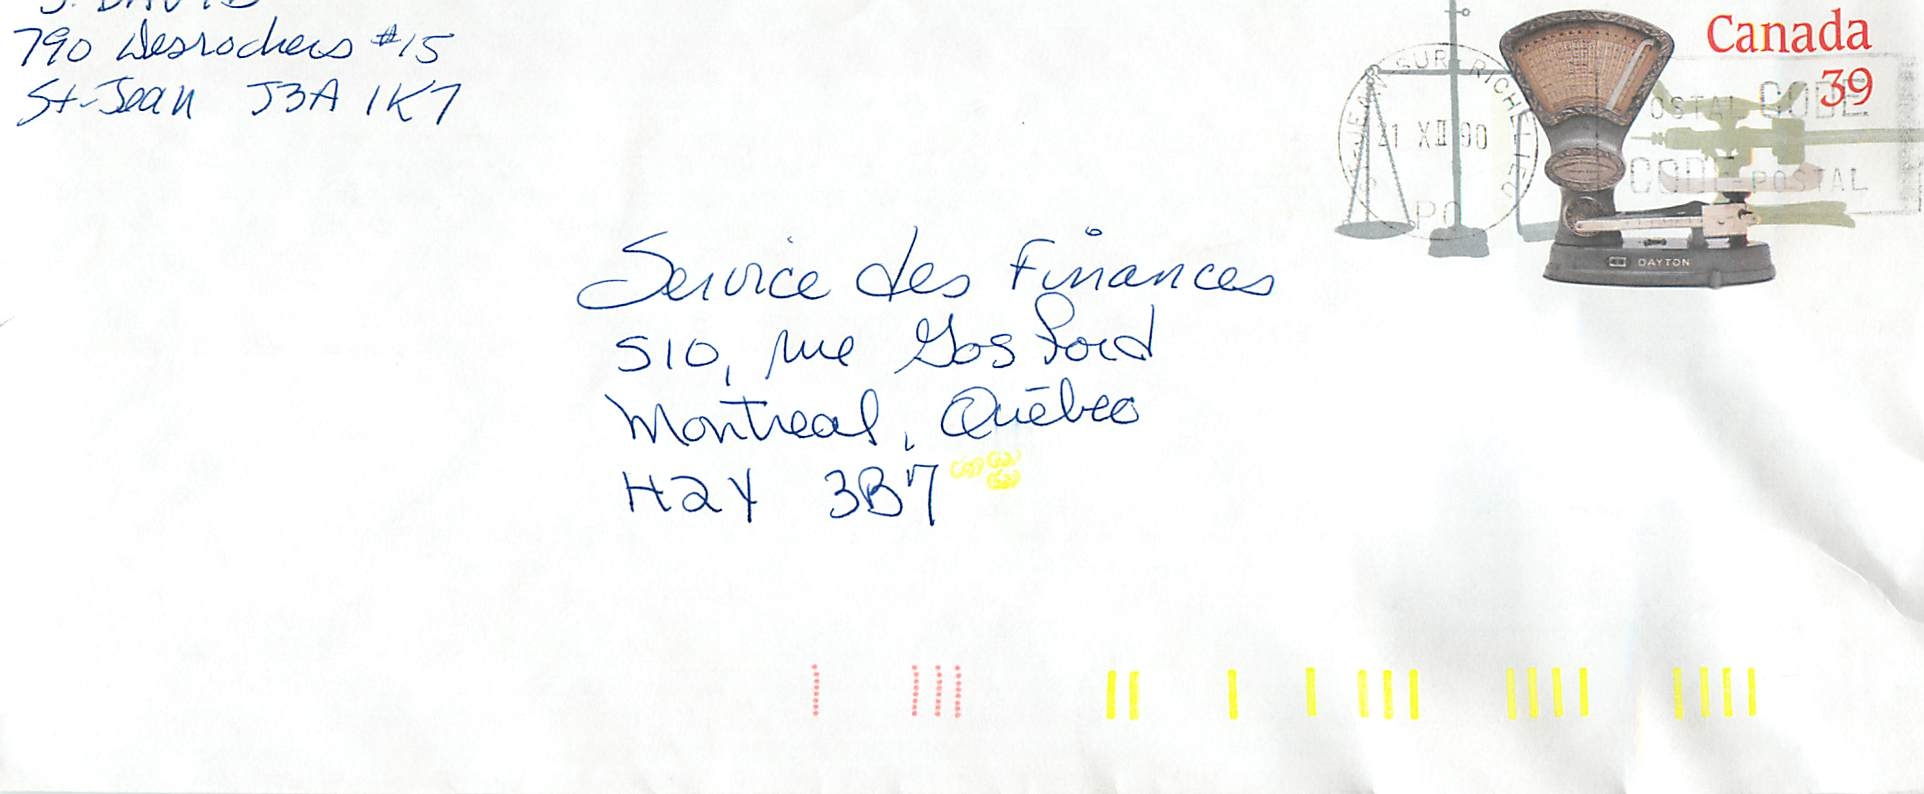 J. DAVID
790 Desrochers #15
St-Jean J3A 1K7
Canada
39
ST-JEAN SUR RICHELIEU
21 XII 90
PQ
POSTAL CODE
CODE POSTAL
DAYTON
Service des Finances
510, rue Gosford
Montreal, Québec
H2Y 3B7